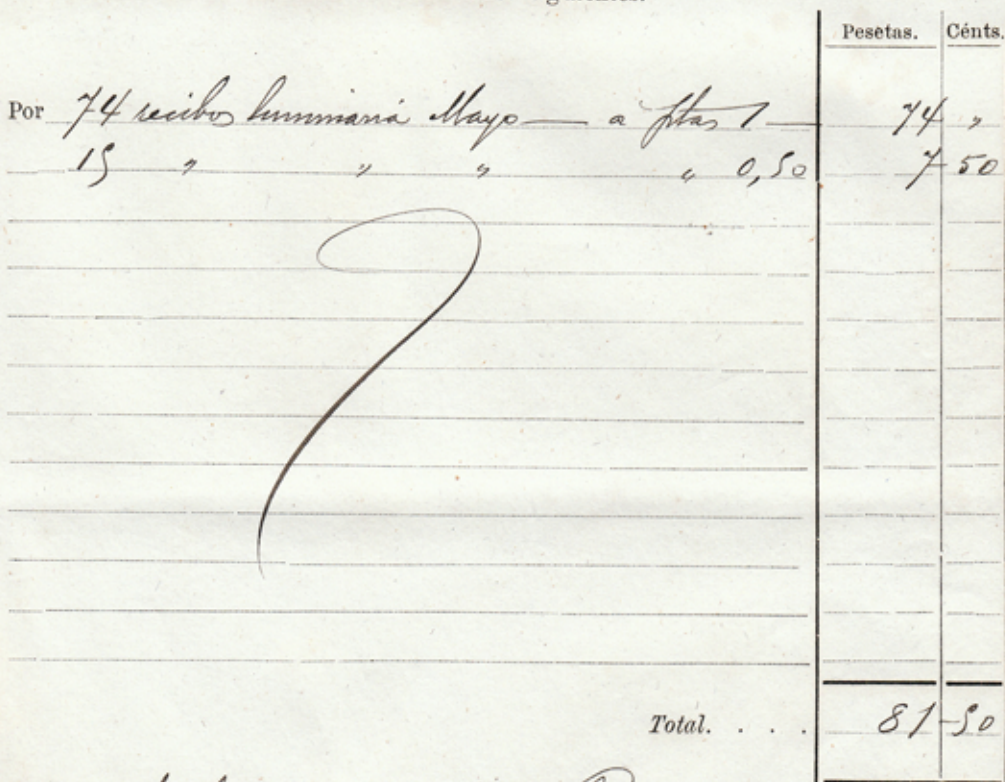 Pesetas. Cénts.
Por 74 recibos luminaria Mayo — a ptas 1 — 74 "
15 " " " " 0,50 7 50
Total. . . . 81-50